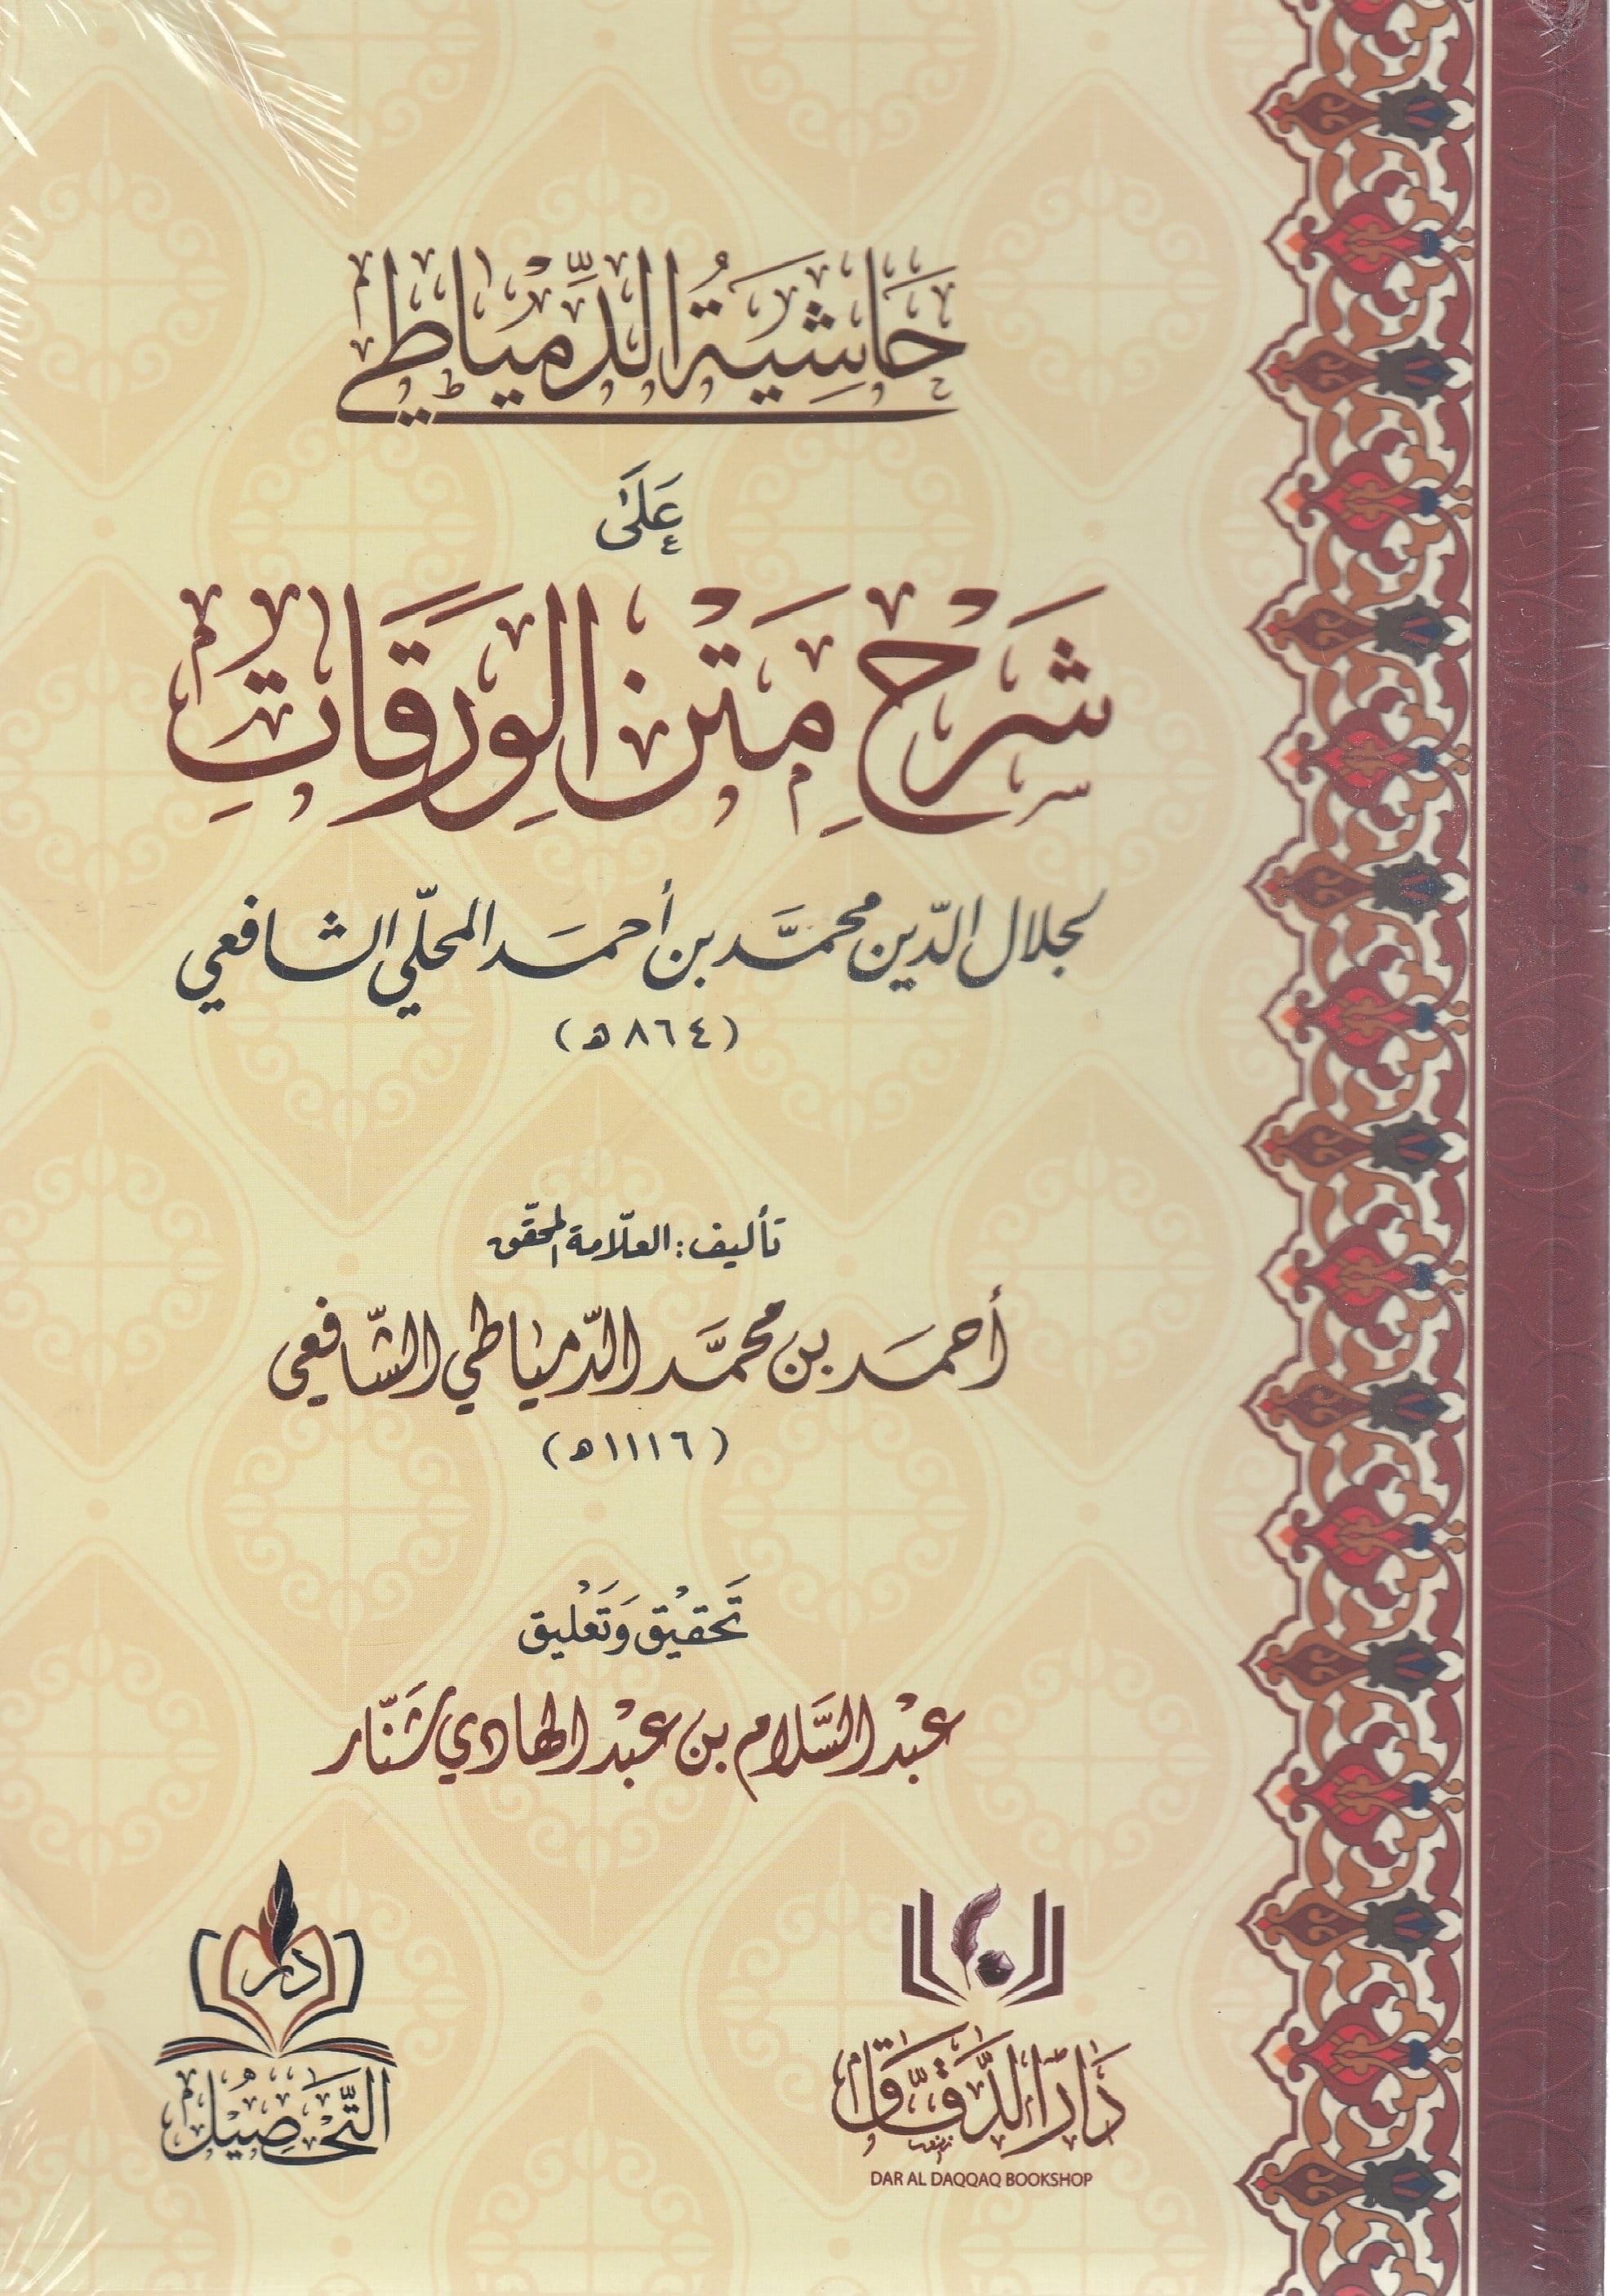 حَاشِيَةُ الدِّمْيَاطِي
عَلَى
شَرْحِ مَتْنِ الوَرَقَاتِ
لجلال الدّين محمَّد بن أحمَد المحلّي الشافعي
(٨٦٤ هـ)
تأليف: العلّامة المحقّق
أحمَد بن محمَّد الدّمياطي الشّافعي
(١١١٦ هـ)
تَحقيْق وَتَعْليق
عبْد السَّلام بن عبْد الهادي شَنّار
دار
التَّحْصِيْل
دَارُ الدَّقَّاق
DAR AL DAQQAQ BOOKSHOP